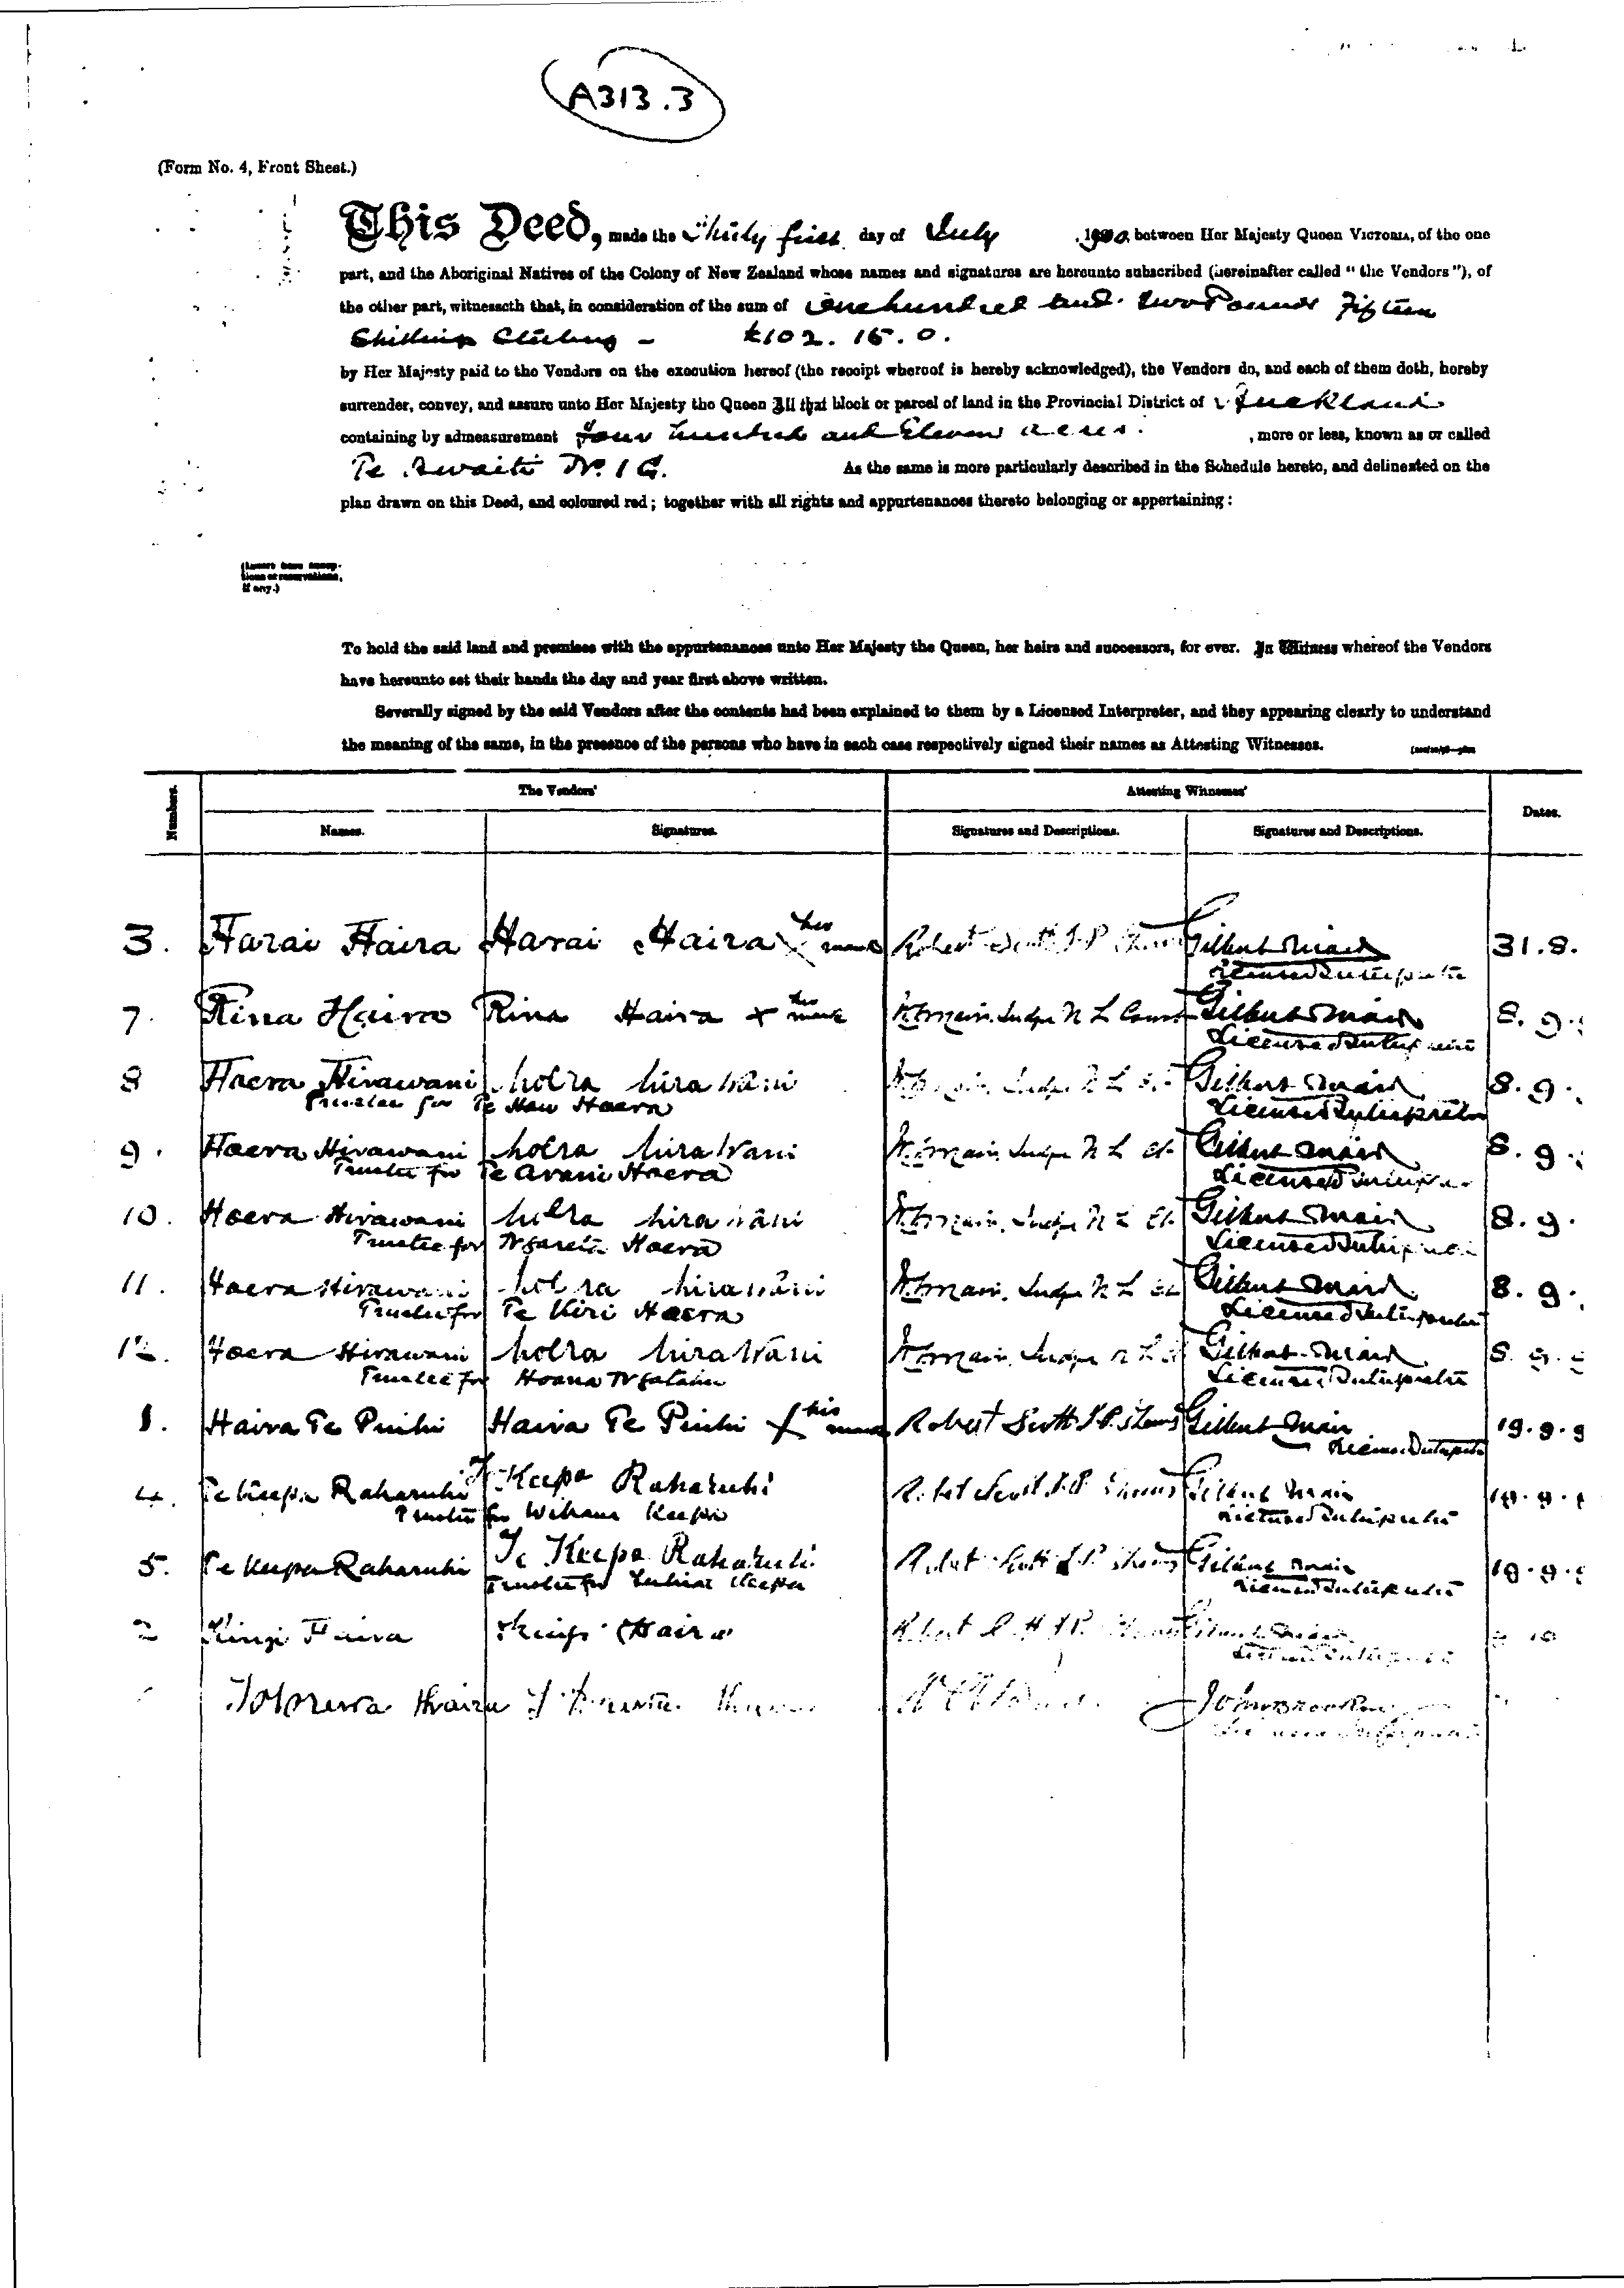 A313.3
(Form No. 4, Front Sheet.)
This Deed, made the Thirty first day of July 1900, between Her Majesty Queen VICTORIA, of the one
part, and the Aboriginal Natives of the Colony of New Zealand whose names and signatures are hereunto subscribed (hereinafter called "the Vendors"), of
the other part, witnesseth that, in consideration of the sum of One hundred and two Pounds Fifteen
Shillings Sterling – £102. 15. 0.
by Her Majesty paid to the Vendors on the execution hereof (the receipt whereof is hereby acknowledged), the Vendors do, and each of them doth, hereby
surrender, convey, and assure unto Her Majesty the Queen All that block or parcel of land in the Provincial District of Auckland
containing by admeasurement four hundred and Eleven acres. , more or less, known as or called
Te Awaiti No. 1 G. As the same is more particularly described in the Schedule hereto, and delineated on the
plan drawn on this Deed, and coloured red; together with all rights and appurtenances thereto belonging or appertaining:
(Insert here excep-
tions or reservations,
if any.)
To hold the said land and premises with the appurtenances unto Her Majesty the Queen, her heirs and successors, for ever. In Witness whereof the Vendors
have hereunto set their hands the day and year first above written.
Severally signed by the said Vendors after the contents had been explained to them by a Licensed Interpreter, and they appearing clearly to understand
the meaning of the same, in the presence of the persons who have in each case respectively signed their names as Attesting Witnesses.
Numbers. The Vendors' Attesting Witnesses' Dates.
Names. Signatures. Signatures and Descriptions. Signatures and Descriptions.
3. Harai Haira Harai Haira x his mark Robert Scott J.P. Gilbert Mair 31.8.
Licensed Interpreter
7. Rina Haira Rina Haira x her mark Judge N L Court Gilbert Mair 8.9.
Licensed Interpreter
8 Haera Hirawani hoera hirawani Judge N L Ct Gilbert Mair 8.9.
Trustee for Te Hau Haera Licensed Interpreter
9. Haera Hirawani hoera hirawani Judge N L Ct Gilbert Mair 8.9.
Trustee for Te Arani Haera Licensed Interpreter
10. Haera Hirawani hoera hirawani Judge N L Ct Gilbert Mair 8.9.
Trustee for Ngareta Haera Licensed Interpreter
11. Haera Hirawani hoera hirawani Judge N L Ct Gilbert Mair 8.9.
Trustee for Te Kiri Haera Licensed Interpreter
12. Haera Hirawani hoera hirawani Judge N L Gilbert Mair 8.9.
Trustee for Hoana Licensed Interpreter
1. Haira Te Pirihi Haira Te Pirihi x his mark Robert Scott J.P. Gilbert Mair 19.9.9
Licensed Interpreter
4. Te Keepa Raharuhi Te Keepa Raharuhi Robert Scott J.P. Gilbert Mair 19.9.
Trustee for Wihana Keepa Licensed Interpreter
5. Te Keepa Raharuhi Te Keepa Raharuhi Robert Scott J.P. Gilbert Mair 19.9.
Trustee for Keepa Licensed Interpreter
2 Kingi Haira Kingi Haira Robert Scott J.P. Gilbert Mair
Licensed Interpreter